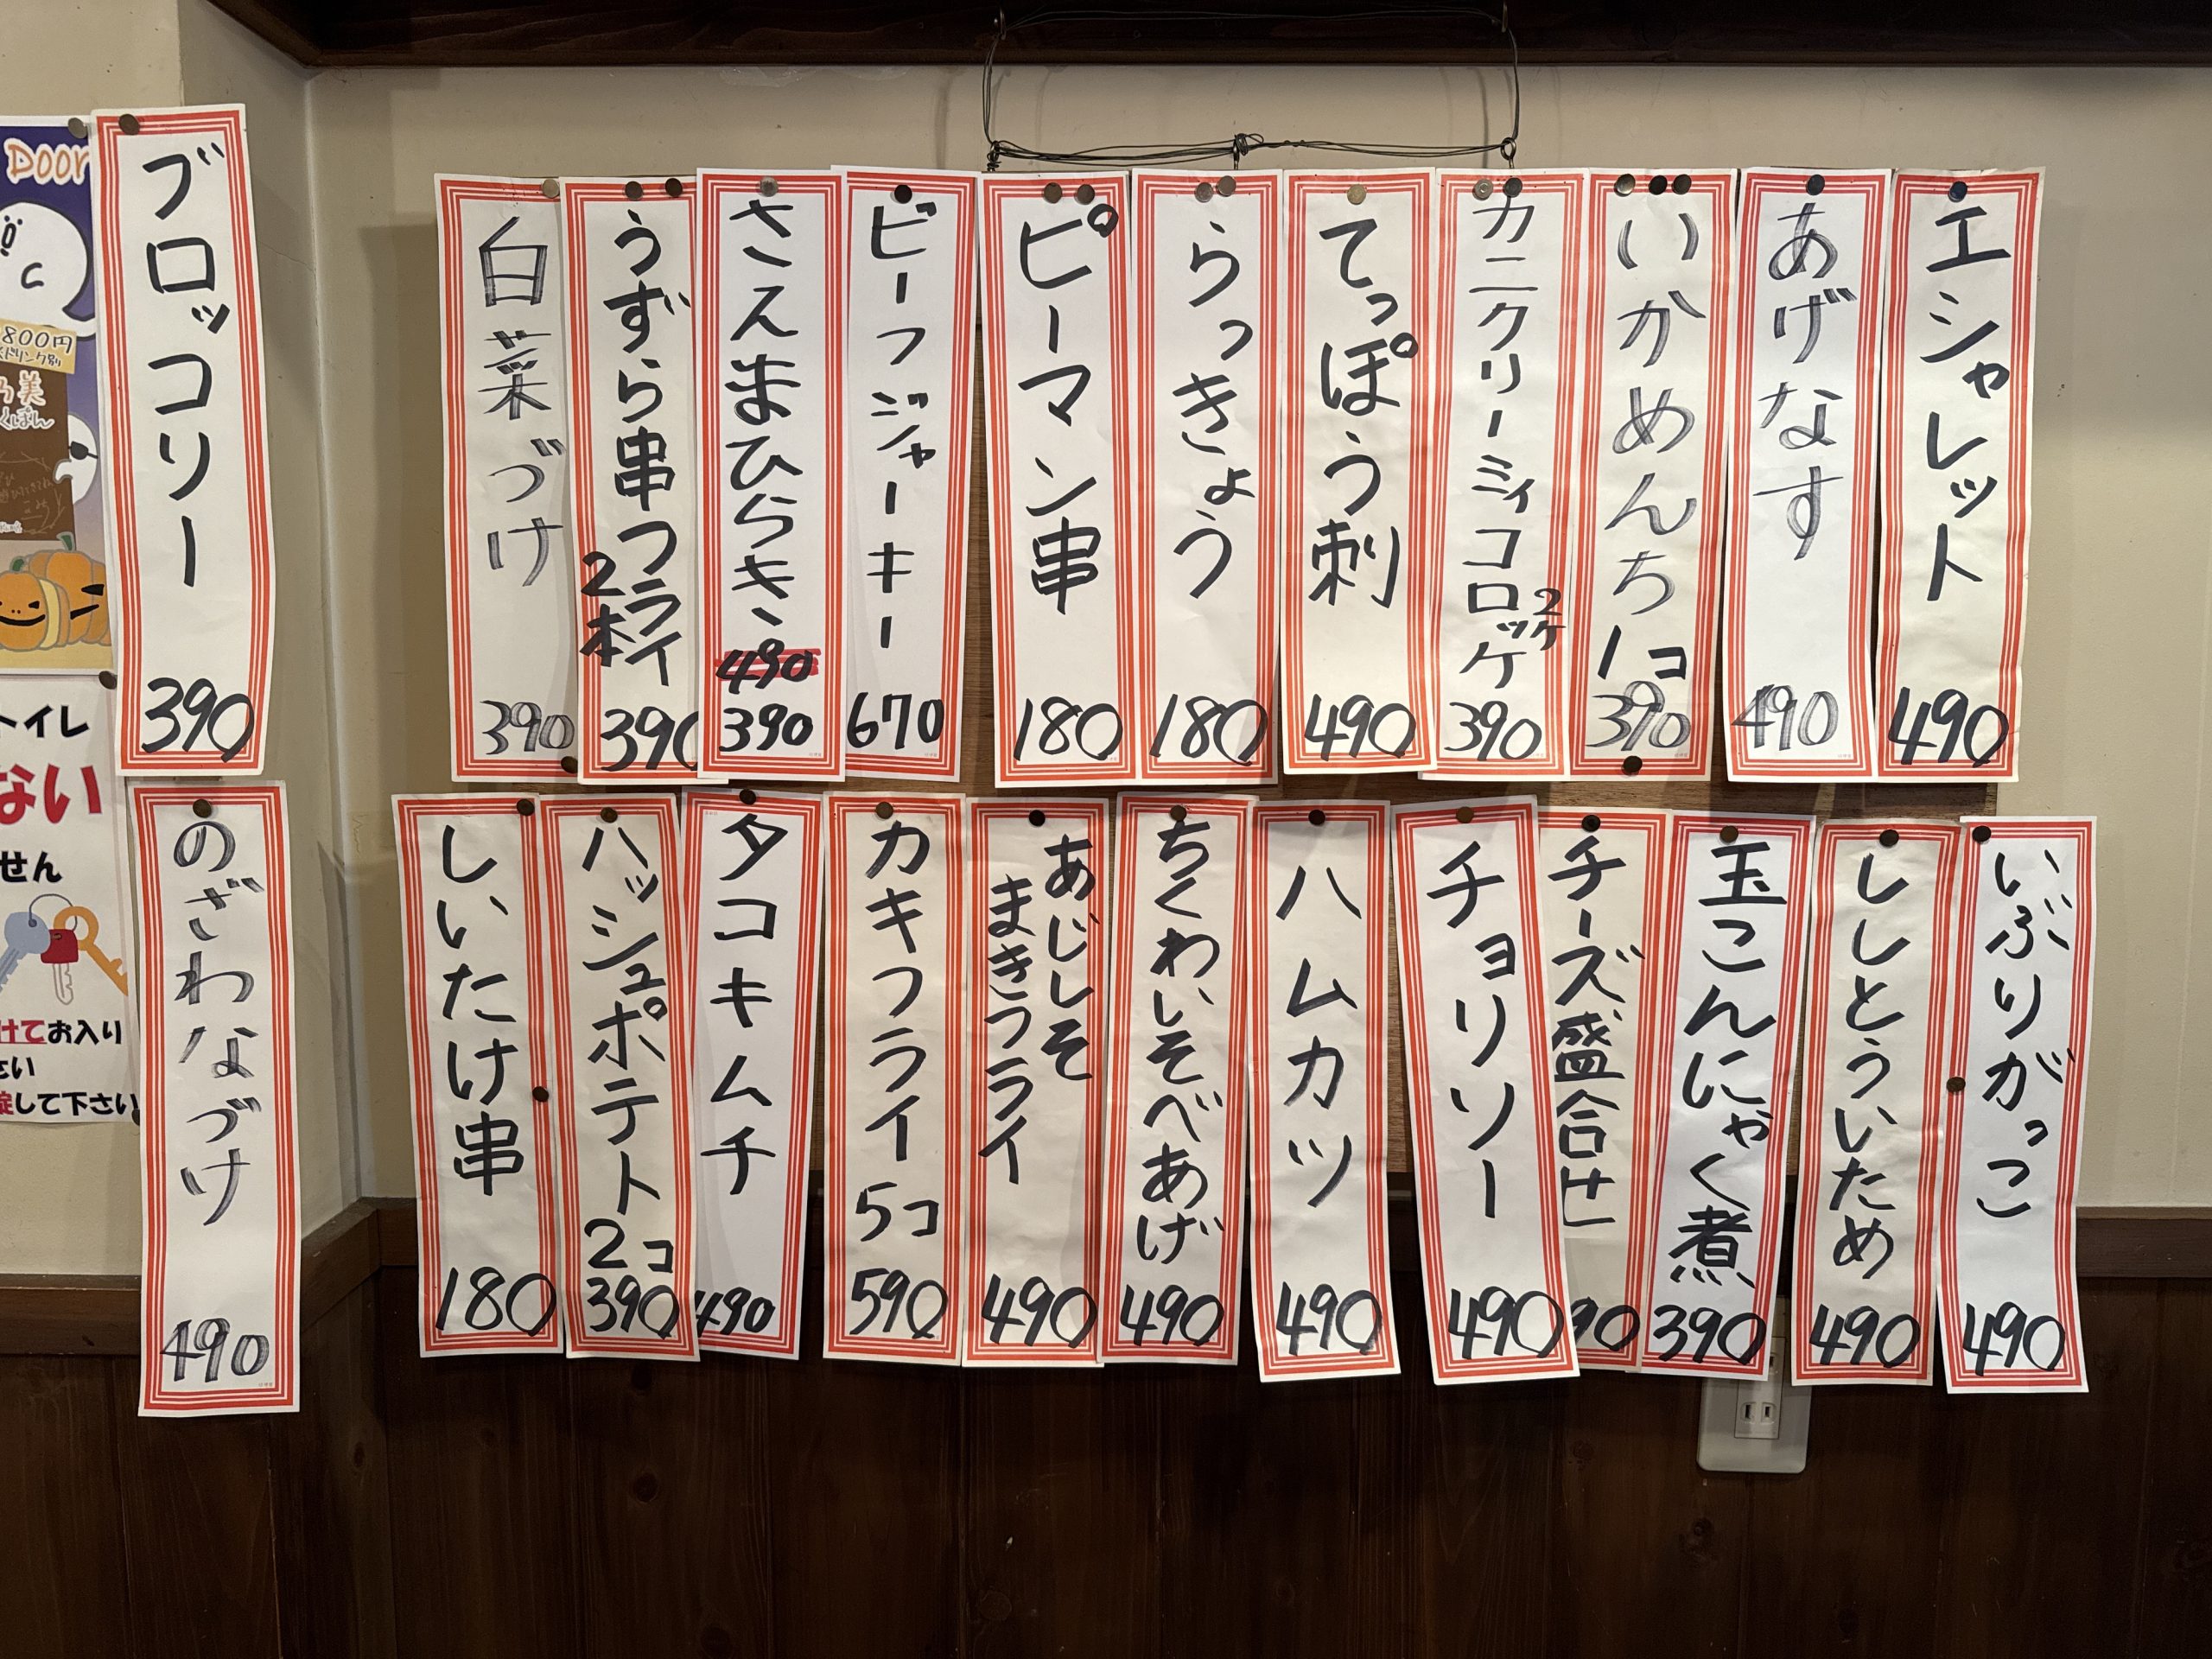 エシャレット
490
あげなす
490
いかめんち
1コ
390
カニクリーミィコロッケ
2ケ
390
てっぽう刺
490
らっきょう
180
ピーマン串
180
ビーフジャーキー
670
さんまひらき
490
390
うずら串フライ
2本
390
白菜づけ
390
ブロッコリー
390
いぶりがっこ
490
ししとういため
490
玉こんにゃく煮
390
チーズ盛合せ
90
チョリソー
490
ハムカツ
490
ちくわいそべあげ
490
あじしそ
まきフライ
490
カキフライ
5コ
590
タコキムチ
490
ハッシュポテト
2コ
390
しいたけ串
180
のざわなづけ
490
Door
800円
トイレ
ない
せん
けてお入り
さい
錠して下さい